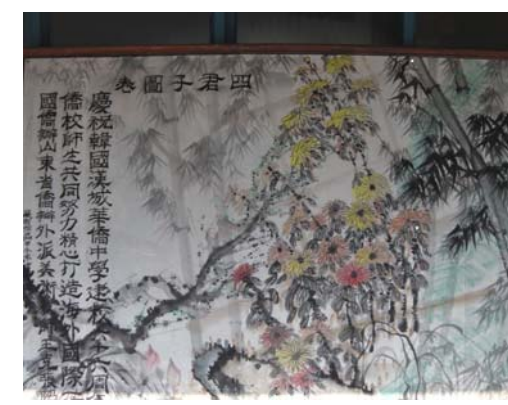 四君子圖卷
慶祝韓國漢城華僑中學建校六十六周
僑校師生共同努力精心打造海外國際
國僑辦山東省僑辦外派美術師王